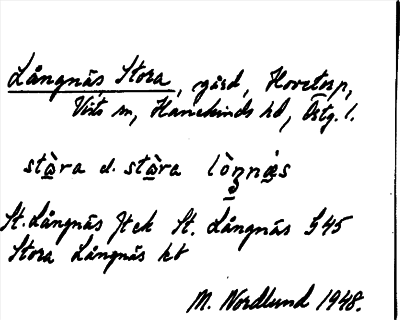 Långnäs Stora, gård, Hovetorp,
Vists sn, Hanekinds hd, Östg. l.
stàra el. stàra lòŋnä̀s
St. Långnäs Jtek St. Långnäs G45
Stora Långnäs kt
M. Nordlund 1948.